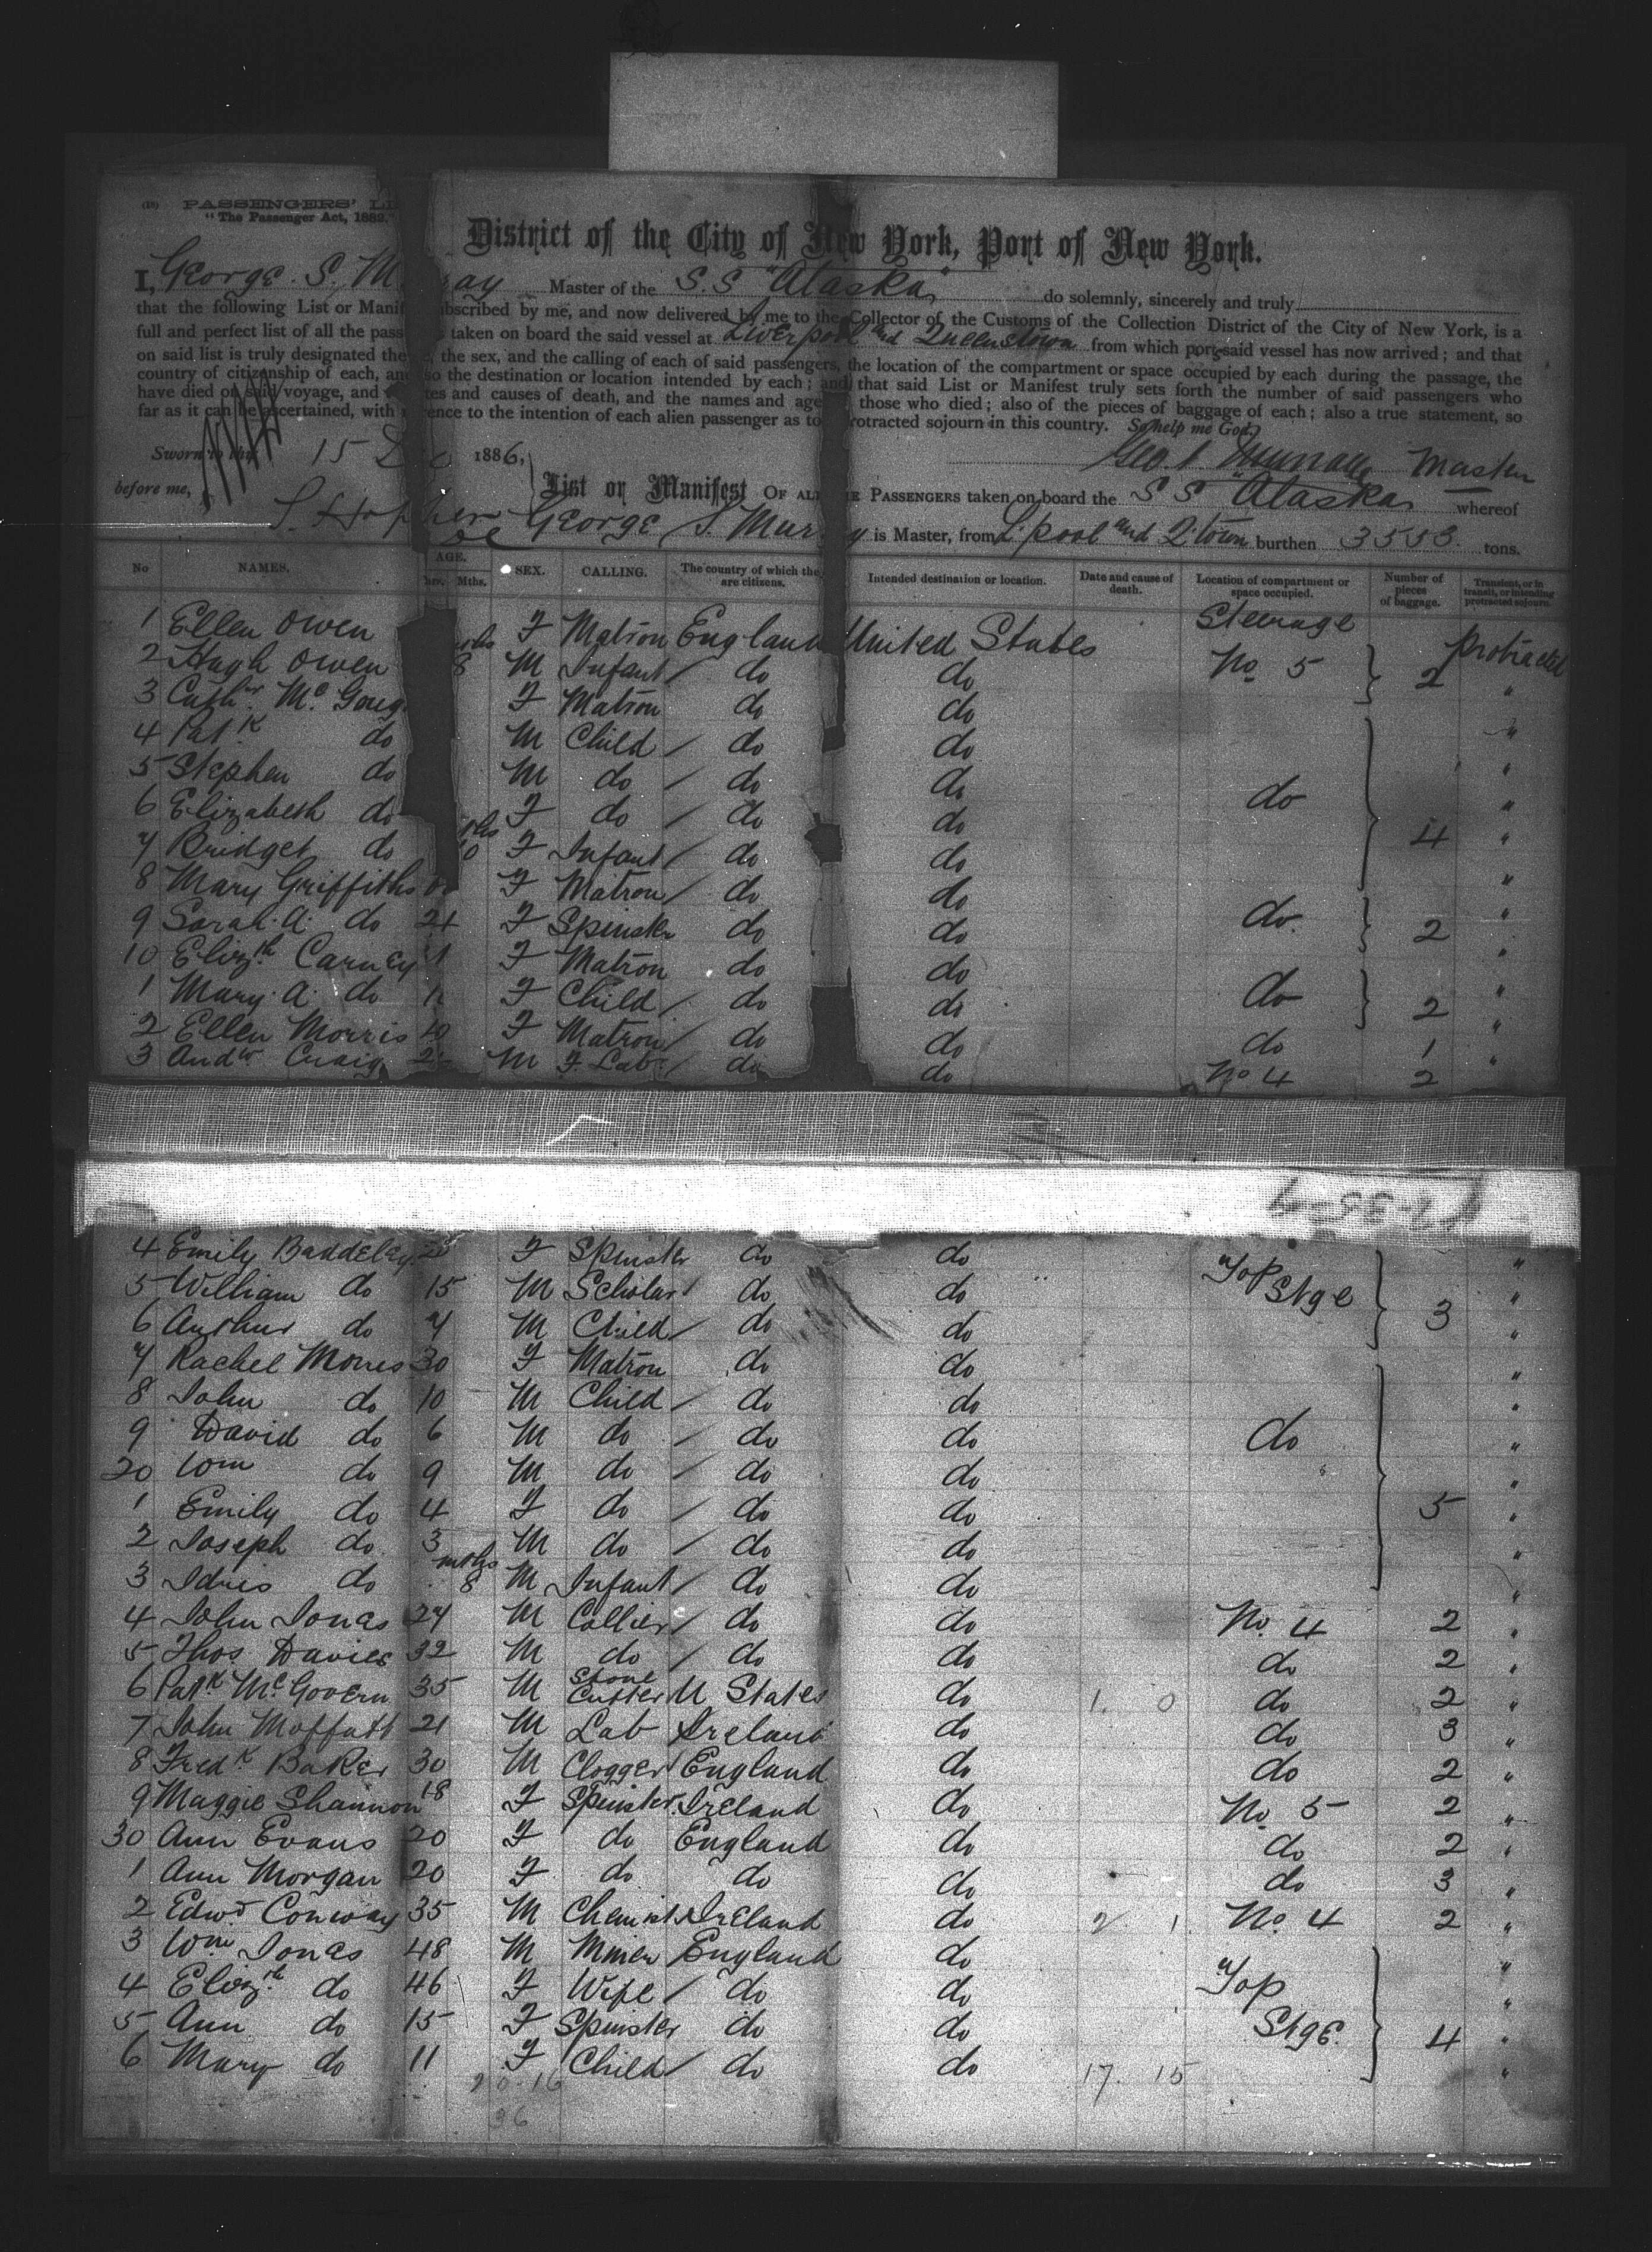 (18) PASSENGERS' LI
"The Passenger Act, 1882."
District of the City of New York, Port of New York.
I, George. S. M ray Master of the S.S "Alaska" do solemnly, sincerely and truly
that the following List or Manif ubscribed by me, and now delivered by me to the Collector of the Customs of the Collection District of the City of New York, is a
full and perfect list of all the pass s taken on board the said vessel at Liverpool and Queenstown from which port said vessel has now arrived; and that
on said list is truly designated the e, the sex, and the calling of each of said passengers, the location of the compartment or space occupied by each during the passage, the
country of citizenship of each, and so the destination or location intended by each; and that said List or Manifest truly sets forth the number of said passengers who
have died on said voyage, and tes and causes of death, and the names and age those who died; also of the pieces of baggage of each; also a true statement, so
far as it can be ascertained, with rence to the intention of each alien passenger as to rotracted sojourn in this country. So help me God,
Sworn to this 15 1886, Geo. S Murray Master
before me,
List or Manifest OF AL E PASSENGERS taken on board the S S "Alaska" whereof
George S. Mur y is Master, from L'pool and Q'town burthen 3553. tons.
No NAMES. AGE. Yrs. Mths. SEX. CALLING. The country of which the are citizens. Intended destination or location. Date and cause of death. Location of compartment or space occupied. Number of pieces of baggage. Transient, or in transit, or intending protracted sojourn.
1 Ellen Owen F Matron England United States Steerage Protracted
2 Hugh Owen mths 8 M Infant / do do No. 5 2 "
3 Cathr. Mc Goug F Matron do do "
4 Patk do M Child / do do "
5 Stephen do M do / do do do "
6 Elizabeth do F do / do do "
7 Bridget do 10 F Infant / do do 4 "
8 Mary Griffiths F Matron / do do "
9 Sarah. A. do 21 F Spinster do do do. 2 "
10 Elizth Carney F Matron do do "
1 Mary. A. do F Child / do do do 2 "
2 Ellen Morris F Matron / do do do 1 "
3 Andw Craig M F Lab. / do do No 4 2
4 Emily Baddeley F Spinster do do Top Stge "
5 William do 15 M Scholar / do do 3 "
6 Arthur do 7 M Child / do do "
7 Rachel Morris 30 F Matron do do "
8 John do 10 M Child / do do "
9 David do 6 M do / do do do "
20 Wm do 9 M do / do do "
1 Emily do 4 F do / do do 5 "
2 Joseph do 3 M do / do do "
3 Idris do mths 8 M Infant / do do "
4 John Jonas 27 M Collier / do do No. 4 2 "
5 Thos Davies 32 M do / do do do 2 "
6 Patk McGovern 35 M Stone Cutter U States do 1. 0 do 2 "
7 John Moffatt 21 M Lab Ireland do do 3 "
8 Fredk Baker 30 M Clogger England do do 2 "
9 Maggie Shannon 18 F Spinster Ireland do No. 5 2 "
30 Ann Evans 20 F do England do do 2 "
1 Ann Morgan 20 F do do do do 3 "
2 Edwd Conway 35 M Chemist Ireland do 2 1 No. 4 2 "
3 Wm Jonas 48 M Miner England do Top Stge. "
4 Elizth do 46 F Wife / do do "
5 Ann do 15 F Spinster do do 4 "
6 Mary do 11 F Child / do do 17. 15 "
20 16
36